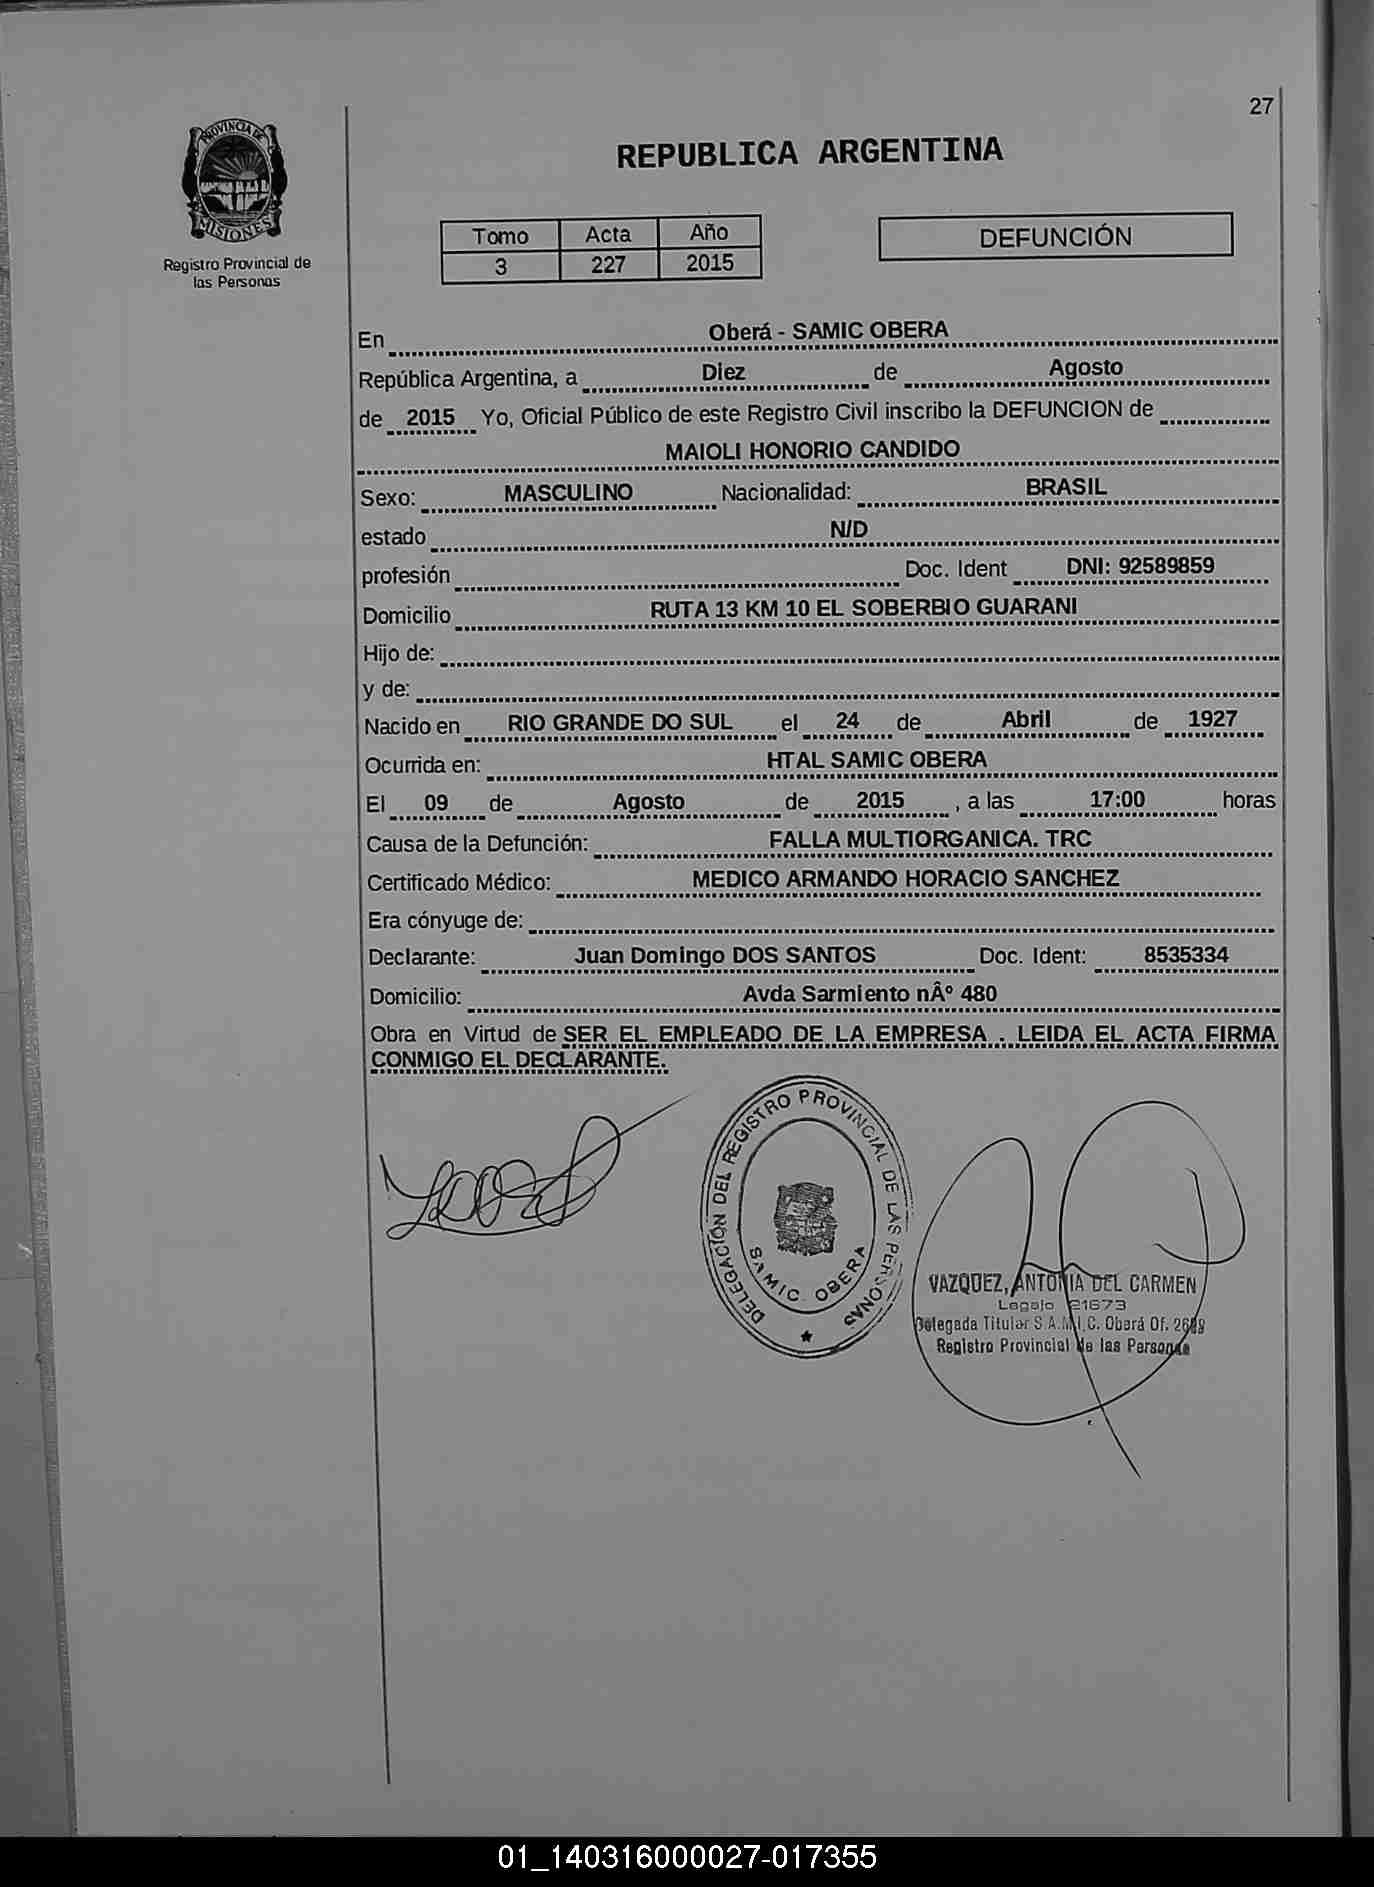 27
PROVINCIA DE
MISIONES
Registro Provincial de
las Personas
REPUBLICA ARGENTINA
Tomo Acta Año
3 227 2015
DEFUNCIÓN
En Oberá - SAMIC OBERA
República Argentina, a Diez de Agosto
de 2015 Yo, Oficial Público de este Registro Civil inscribo la DEFUNCION de
MAIOLI HONORIO CANDIDO
Sexo: MASCULINO Nacionalidad: BRASIL
estado N/D
profesión Doc. Ident DNI: 92589859
Domicilio RUTA 13 KM 10 EL SOBERBIO GUARANI
Hijo de:
y de:
Nacido en RIO GRANDE DO SUL el 24 de Abril de 1927
Ocurrida en: HTAL SAMIC OBERA
El 09 de Agosto de 2015 , a las 17:00 horas
Causa de la Defunción: FALLA MULTIORGANICA. TRC
Certificado Médico: MEDICO ARMANDO HORACIO SANCHEZ
Era cónyuge de:
Declarante: Juan Domingo DOS SANTOS Doc. Ident: 8535334
Domicilio: Avda Sarmiento nÂº 480
Obra en Virtud de SER EL EMPLEADO DE LA EMPRESA . LEIDA EL ACTA FIRMA
CONMIGO EL DECLARANTE.
DELEGACIÓN DEL REGISTRO PROVINCIAL DE LAS PERSONAS
SAMIC. OBERA
VAZQUEZ, ANTONIA DEL CARMEN
Legajo 21673
Delegada Titular S.A.M.I.C. Oberá Of.
Registro Provincial de las Personas
01_140316000027-017355